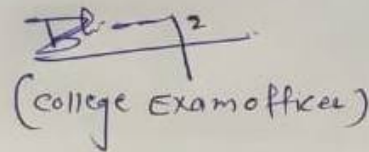 (College Exam officer)